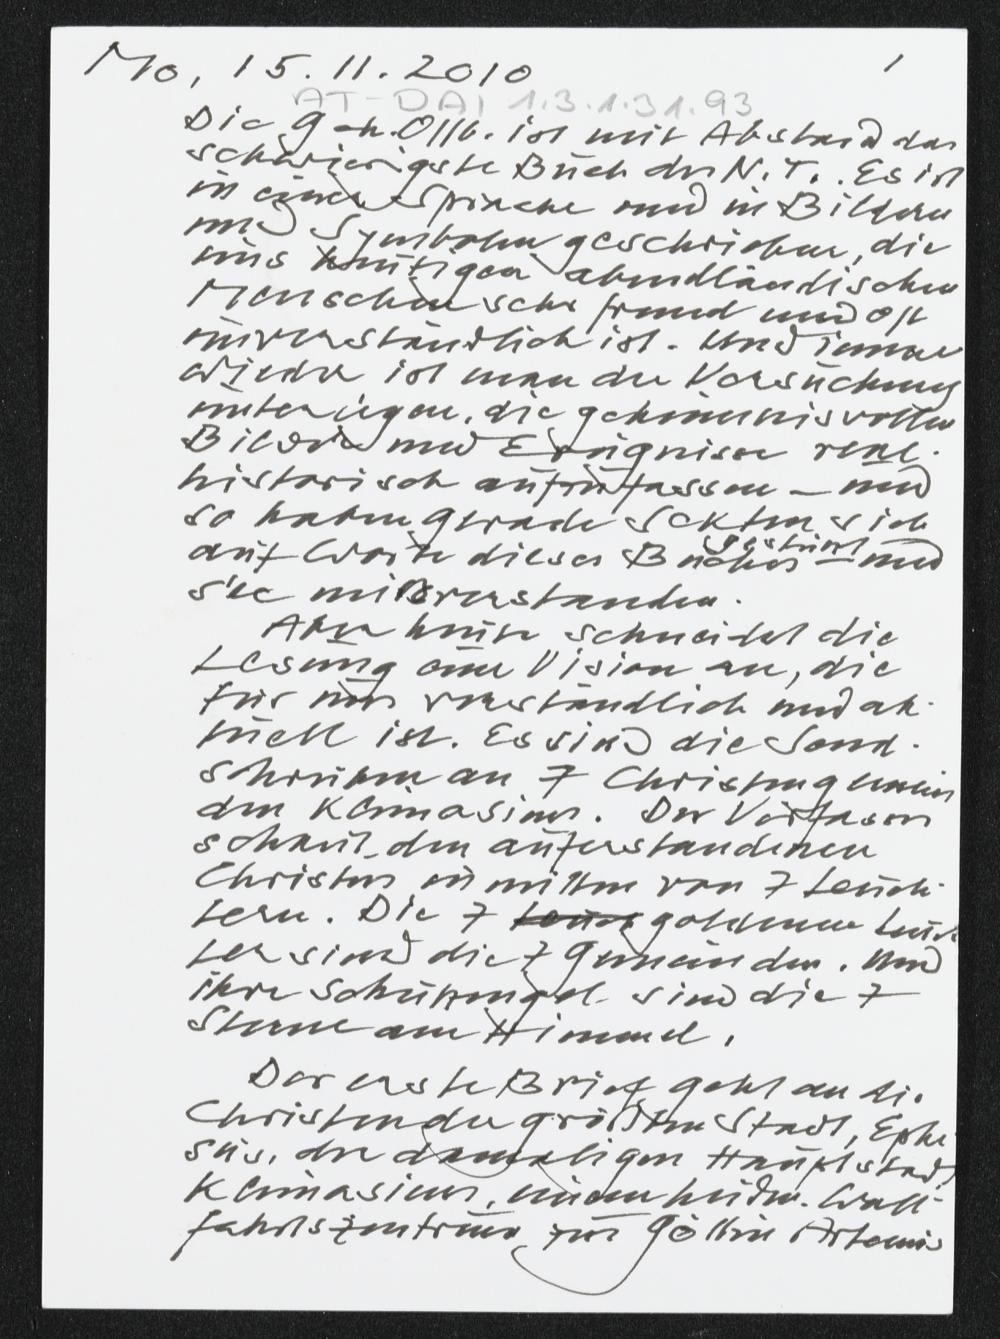 Mo, 15.11.2010 1
AT-DAI 1.3.1.31.93
Die Geh. Offb. ist mit Abstand das
schwierigste Buch des N.T.. Es ist
in einer Sprache und in Bildern
und Symbolen geschrieben, die
uns heutigen abendländischen
Menschen sehr fremd und oft
unverständlich ist. Und immer
wieder ist man der Versuchung
unterlegen, die geheimnisvollen
Bilder und Ereignisse real-
historisch aufzufassen – und
so haben gerade Sekten sich
auf Worte dieses Buches gestürzt – und
sie mißverstanden.
Aber heute schneidet die
Lesung eine Vision an, die
für uns verständlich und ak-
tuell ist. Es sind die Send-
schreiben an 7 Christengemein
den Kleinasiens. Der Verfasser
schaut den auferstandenen
Christus inmitten von 7 Leuch-
tern. Die 7 goldenen Leuch-
ter sind die 7 Gemeinden. Und
ihre Schutzengel sind die 7
Sterne am Himmel.
Der erste Brief geht an die
Christen der größten Stadt, Ephe-
sus, der damaligen Hauptstadt
Kleinasiens, einem heidn. Wall-
fahrtszentrum zur Göttin Artemis